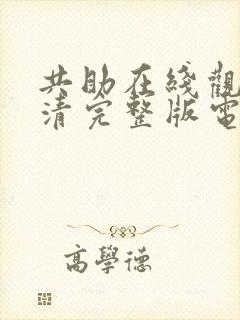 共助在綫觀
清完整版電
高學德